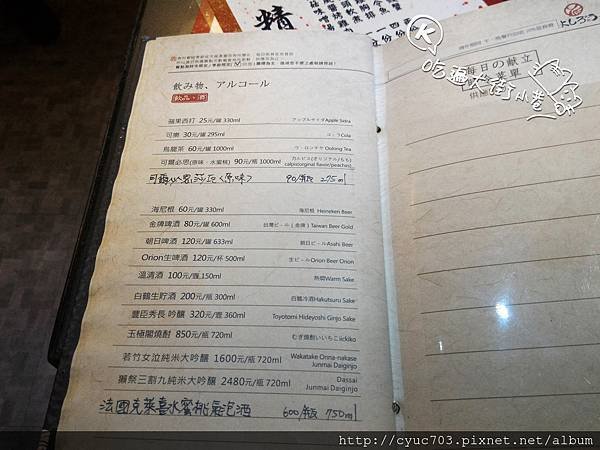 飲み物、アルコール
飲品・酒
蘋果西打 25元/罐 330ml アップルサイダApple Sidra
可樂 30元/罐 295ml コーラCola
烏龍茶 60元/罐 1000ml ウ－ロンチヤ Ooling Tea
可爾必思(原味、水蜜桃) 90元/瓶 1000ml カルピス(オリジナル/もも)
calpis(orginal flavor/peaches)
可爾必思(原味) 90/瓶 275ml
海尼根 60元/罐 330ml 海尼根 Heineken Beer
金牌啤酒 80元/罐 600ml 台灣ビール(金牌) Taiwan Beer Gold
朝日啤酒 120元/罐 633ml 朝日ビールAsahi Beer
Orion生啤酒 120元/杯 500ml 生ビールOrion Beer Onion
溫清酒 100元/壺 150ml 熱燗Warm Sake
白鶴生貯酒 200元/瓶 300ml 白鶴冷酒Hakutsuru Sake
豐臣秀長 吟釀 320元/壺 360ml Toyotomi Hideyoshi Ginjo Sake
玉極閣燒酎 850元/瓶 720ml むぎ燒酎いいちこiickiko
若竹女泣純米大吟釀 1600元/瓶 720ml Wakatake Onna-nakase
Junmai Daiginjo
獺祭三割九純米大吟釀 2480元/瓶 720ml Dassai
Junmai Daiginjo
法國克萊喜水蜜桃氣泡酒 600/瓶 750ml
毎日の献立
菜單
吃遍大街小巷
http://cyuc703.pixnet.net/album